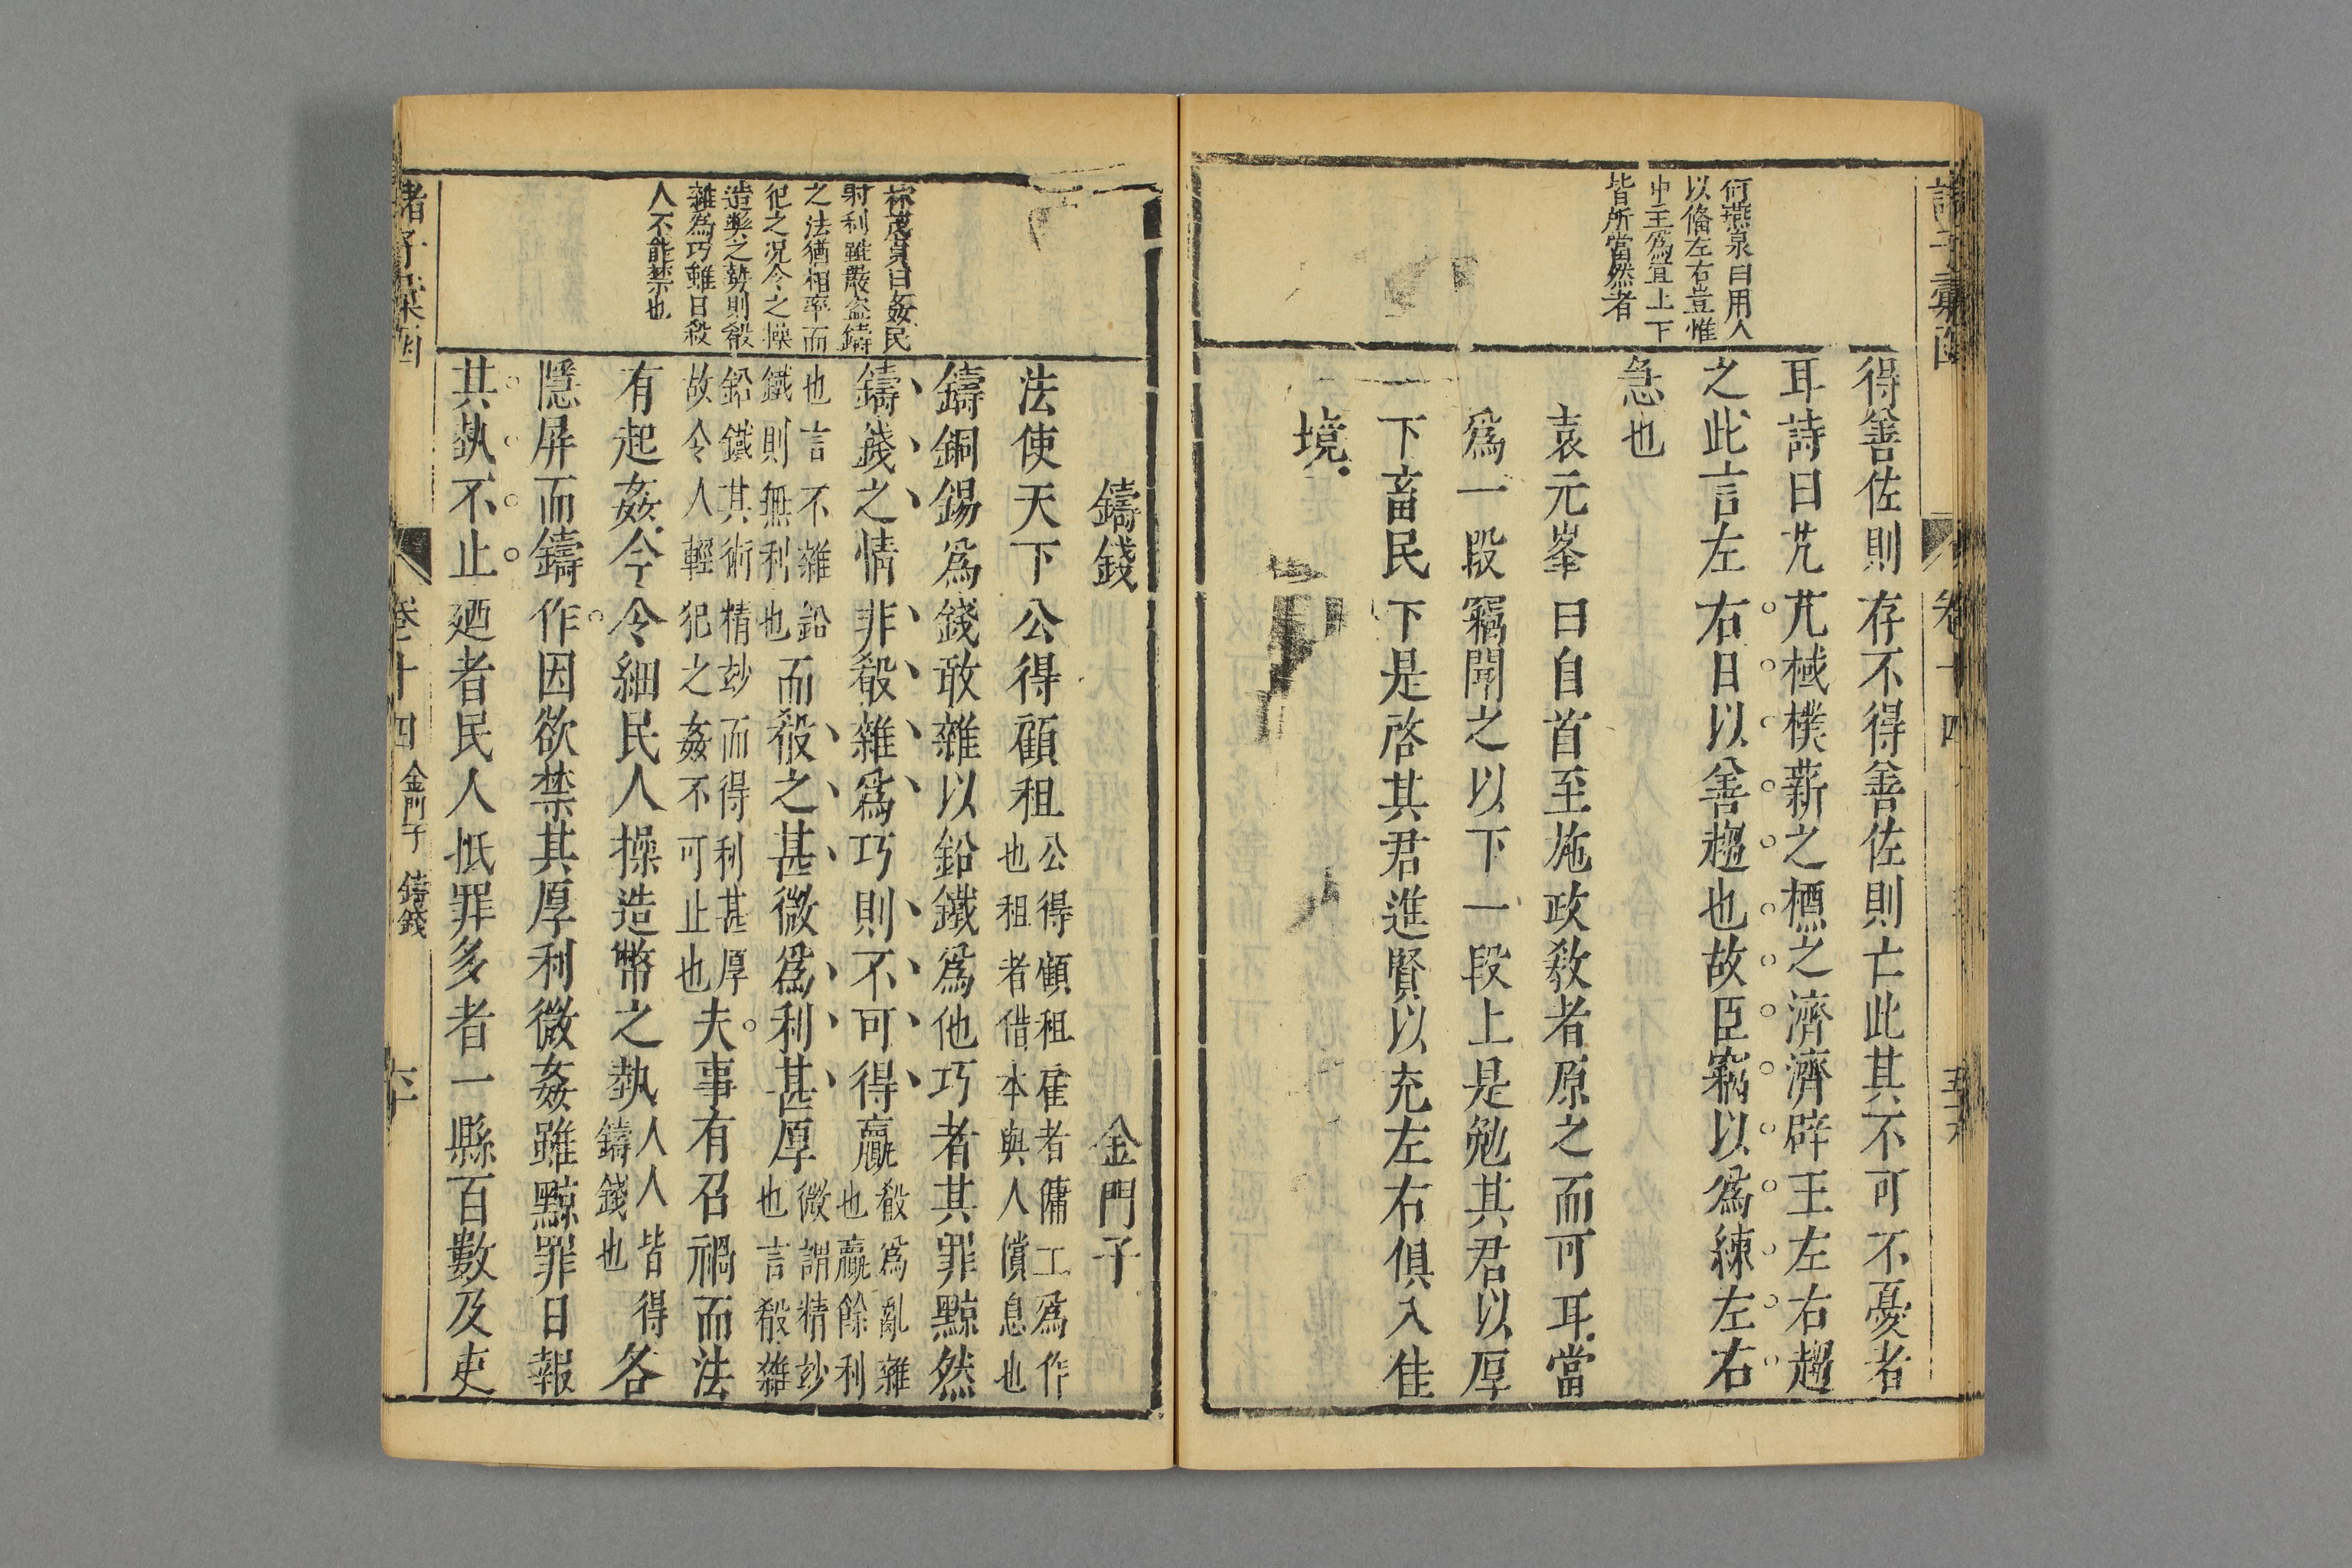 何燕泉曰用人
以脩左右豈惟
中主爲宜上下
皆所當然者
得善佐則存不得善佐則亡此其不可不憂者
耳詩曰芃芃棫樸薪之槱之濟濟辟王左右趨
之此言左右日以善趨也故臣竊以爲練左右
急也
袁元峯曰自首至施政敎者原之而可耳當
爲一段竊聞之以下一段上是勉其君以厚
下畜民下是啓其君進賢以充左右俱入佳
境
卷十四
射利雖嚴盜鑄
之法猶相率而
犯之况令之操
造幣之埶則殽
雜爲巧雖日殺
人不能禁也
鑄錢 金門子
法使天下公得顧租公得顧租雇者傭工爲作也租者借本與人償息也
鑄銅錫爲錢敢雜以鉛鐵爲他巧者其罪黥然
鑄錢之情非殽雜爲巧則不可得贏殽爲亂雜也贏餘利
也言不雜鉛鐵則無利也而殽之甚微爲利甚厚微謂精妙也言殽雜
鉛鐵其術精妙而得利甚厚故令人輕犯之姦不可止也夫事有召禍而法
有起姦今令細民人操造幣之埶人人皆得鑄錢也各
隱屏而鑄作因欲禁其厚利微姦雖黥罪日報
其埶不止廼者民人抵罪多者一縣百數及吏
卷十四 金門子 鑄錢 六十